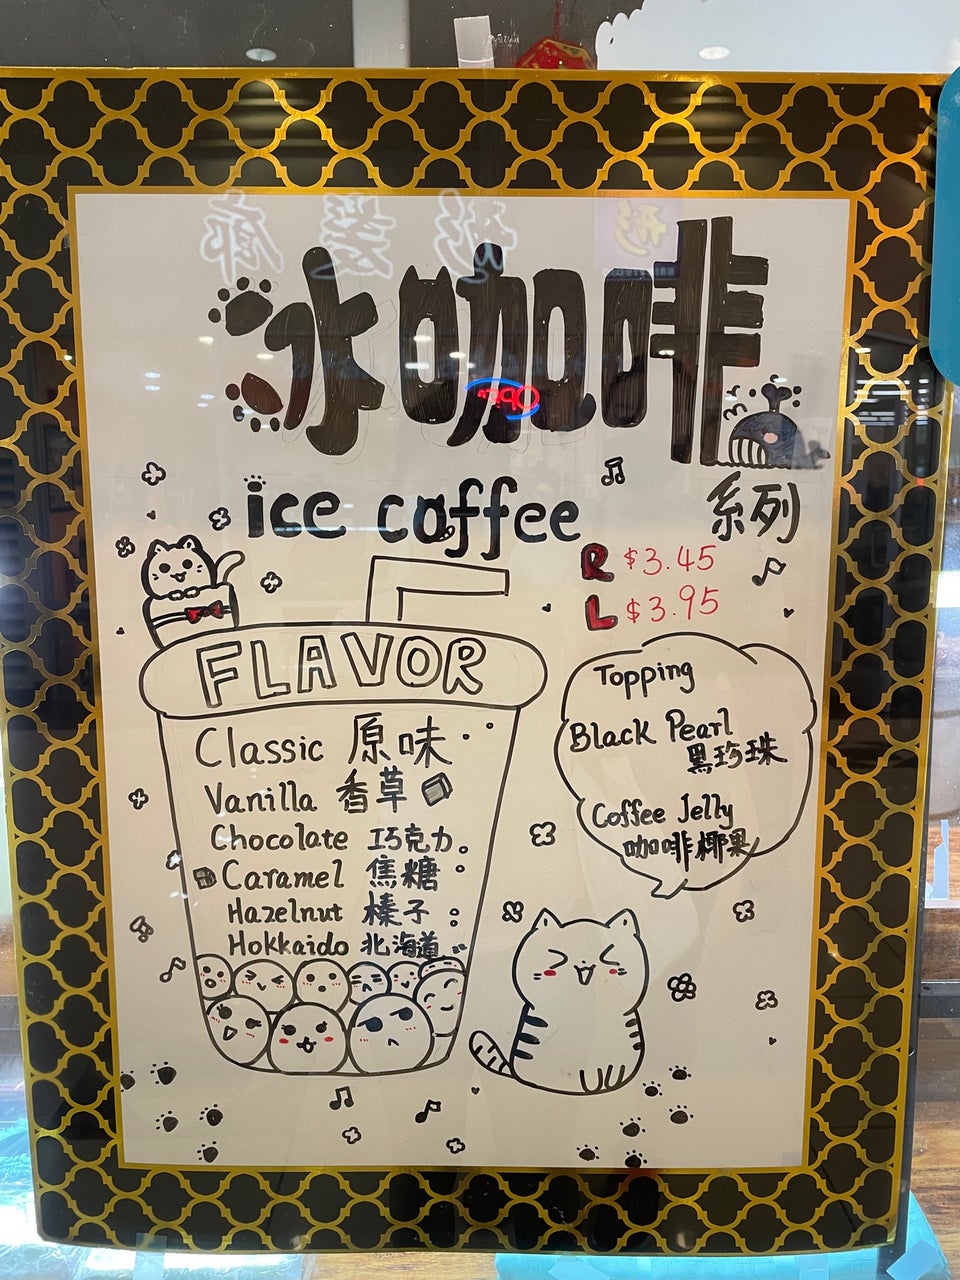 冰咖啡
ice coffee
系列
R $3.45
L $3.95
FLAVOR
Classic 原味
Vanilla 香草
Chocolate 巧克力
Caramel 焦糖
Hazelnut 榛子
Hokkaido 北海道
Topping
Black Pearl
黑珍珠
Coffee Jelly
咖啡椰果